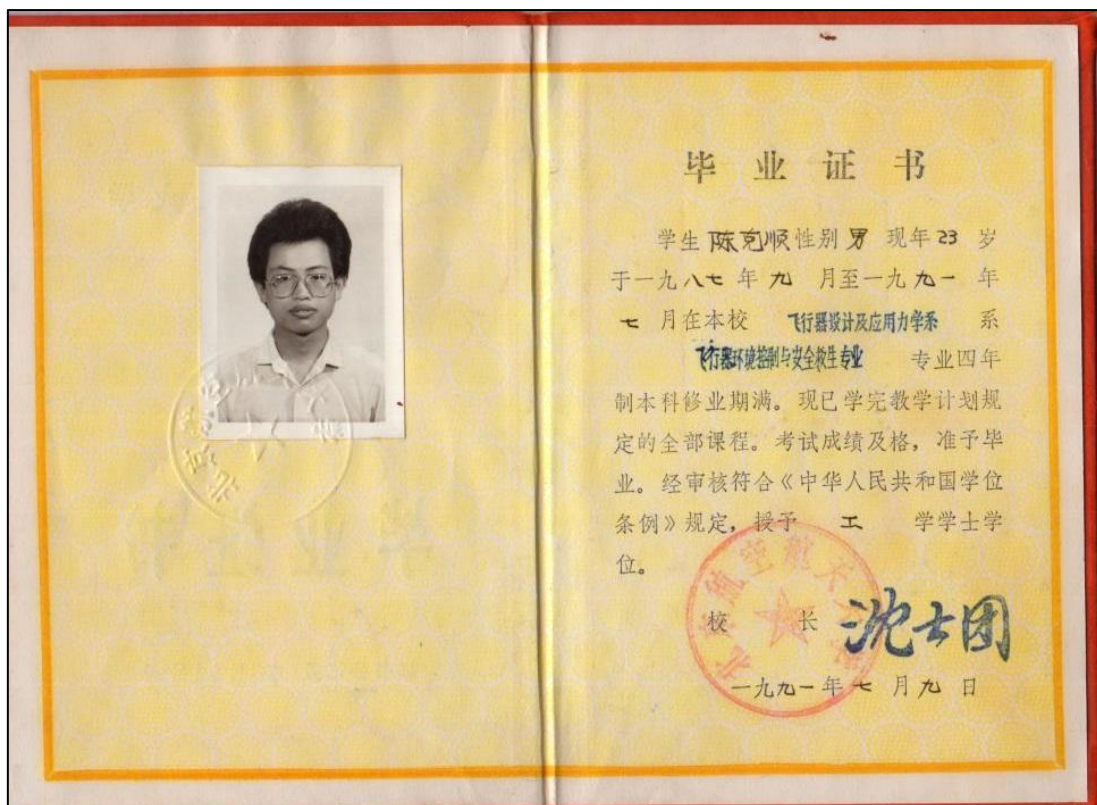 毕业证书
学生 陈克顺 性别 男 现年 23 岁
于一九八七年九月至一九九一年
七月在本校 飞行器设计及应用力学系 系
飞行器环境控制与安全救生专业 专业四年
制本科修业期满。现已学完教学计划规
定的全部课程。考试成绩及格，准予毕
业。经审核符合《中华人民共和国学位
条例》规定，授予 工 学学士学
位。
北京航空航天大学
校 长 沈士团
一九九一年七月九日